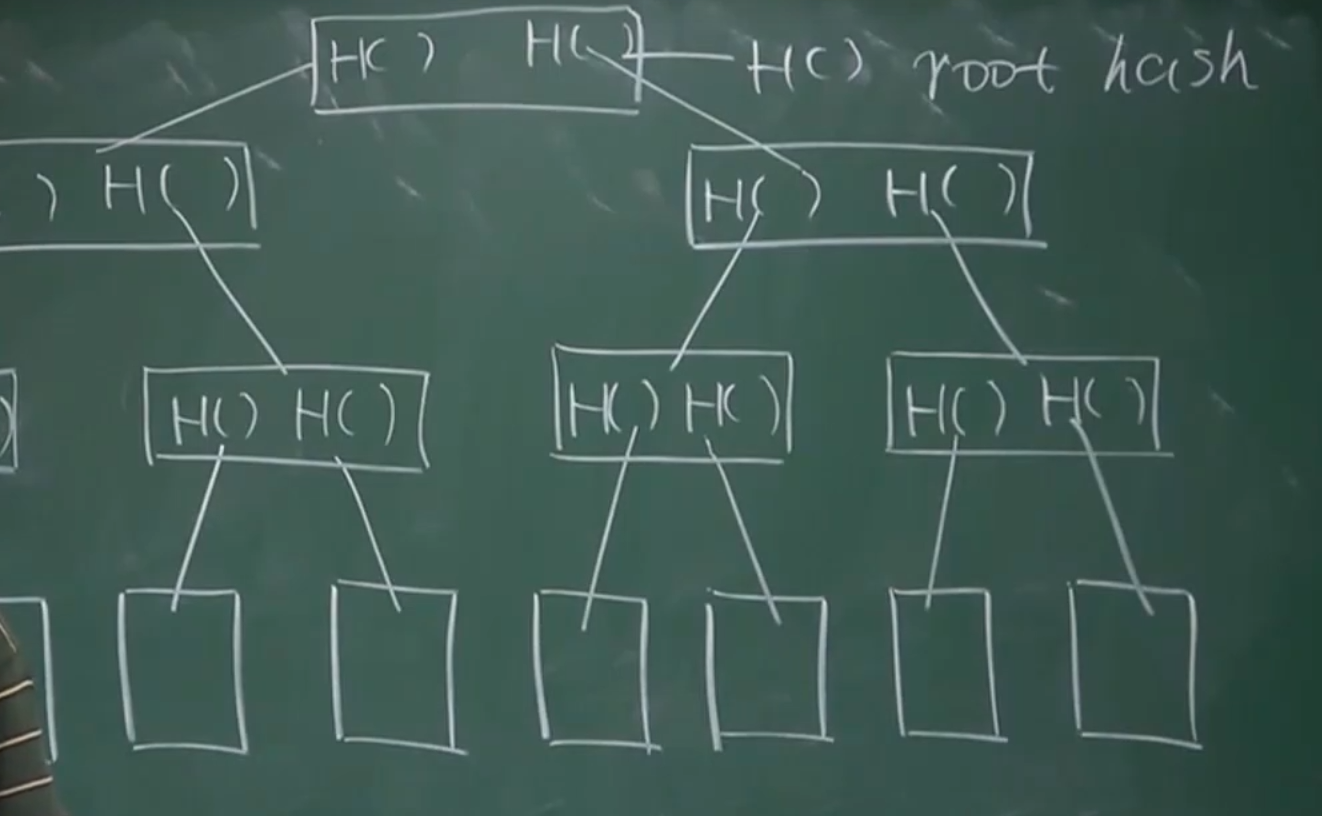 H( ) H( ) H( ) root hash
) H( ) H( ) H( )
) H( ) H( ) H( ) H( ) H( ) H( )